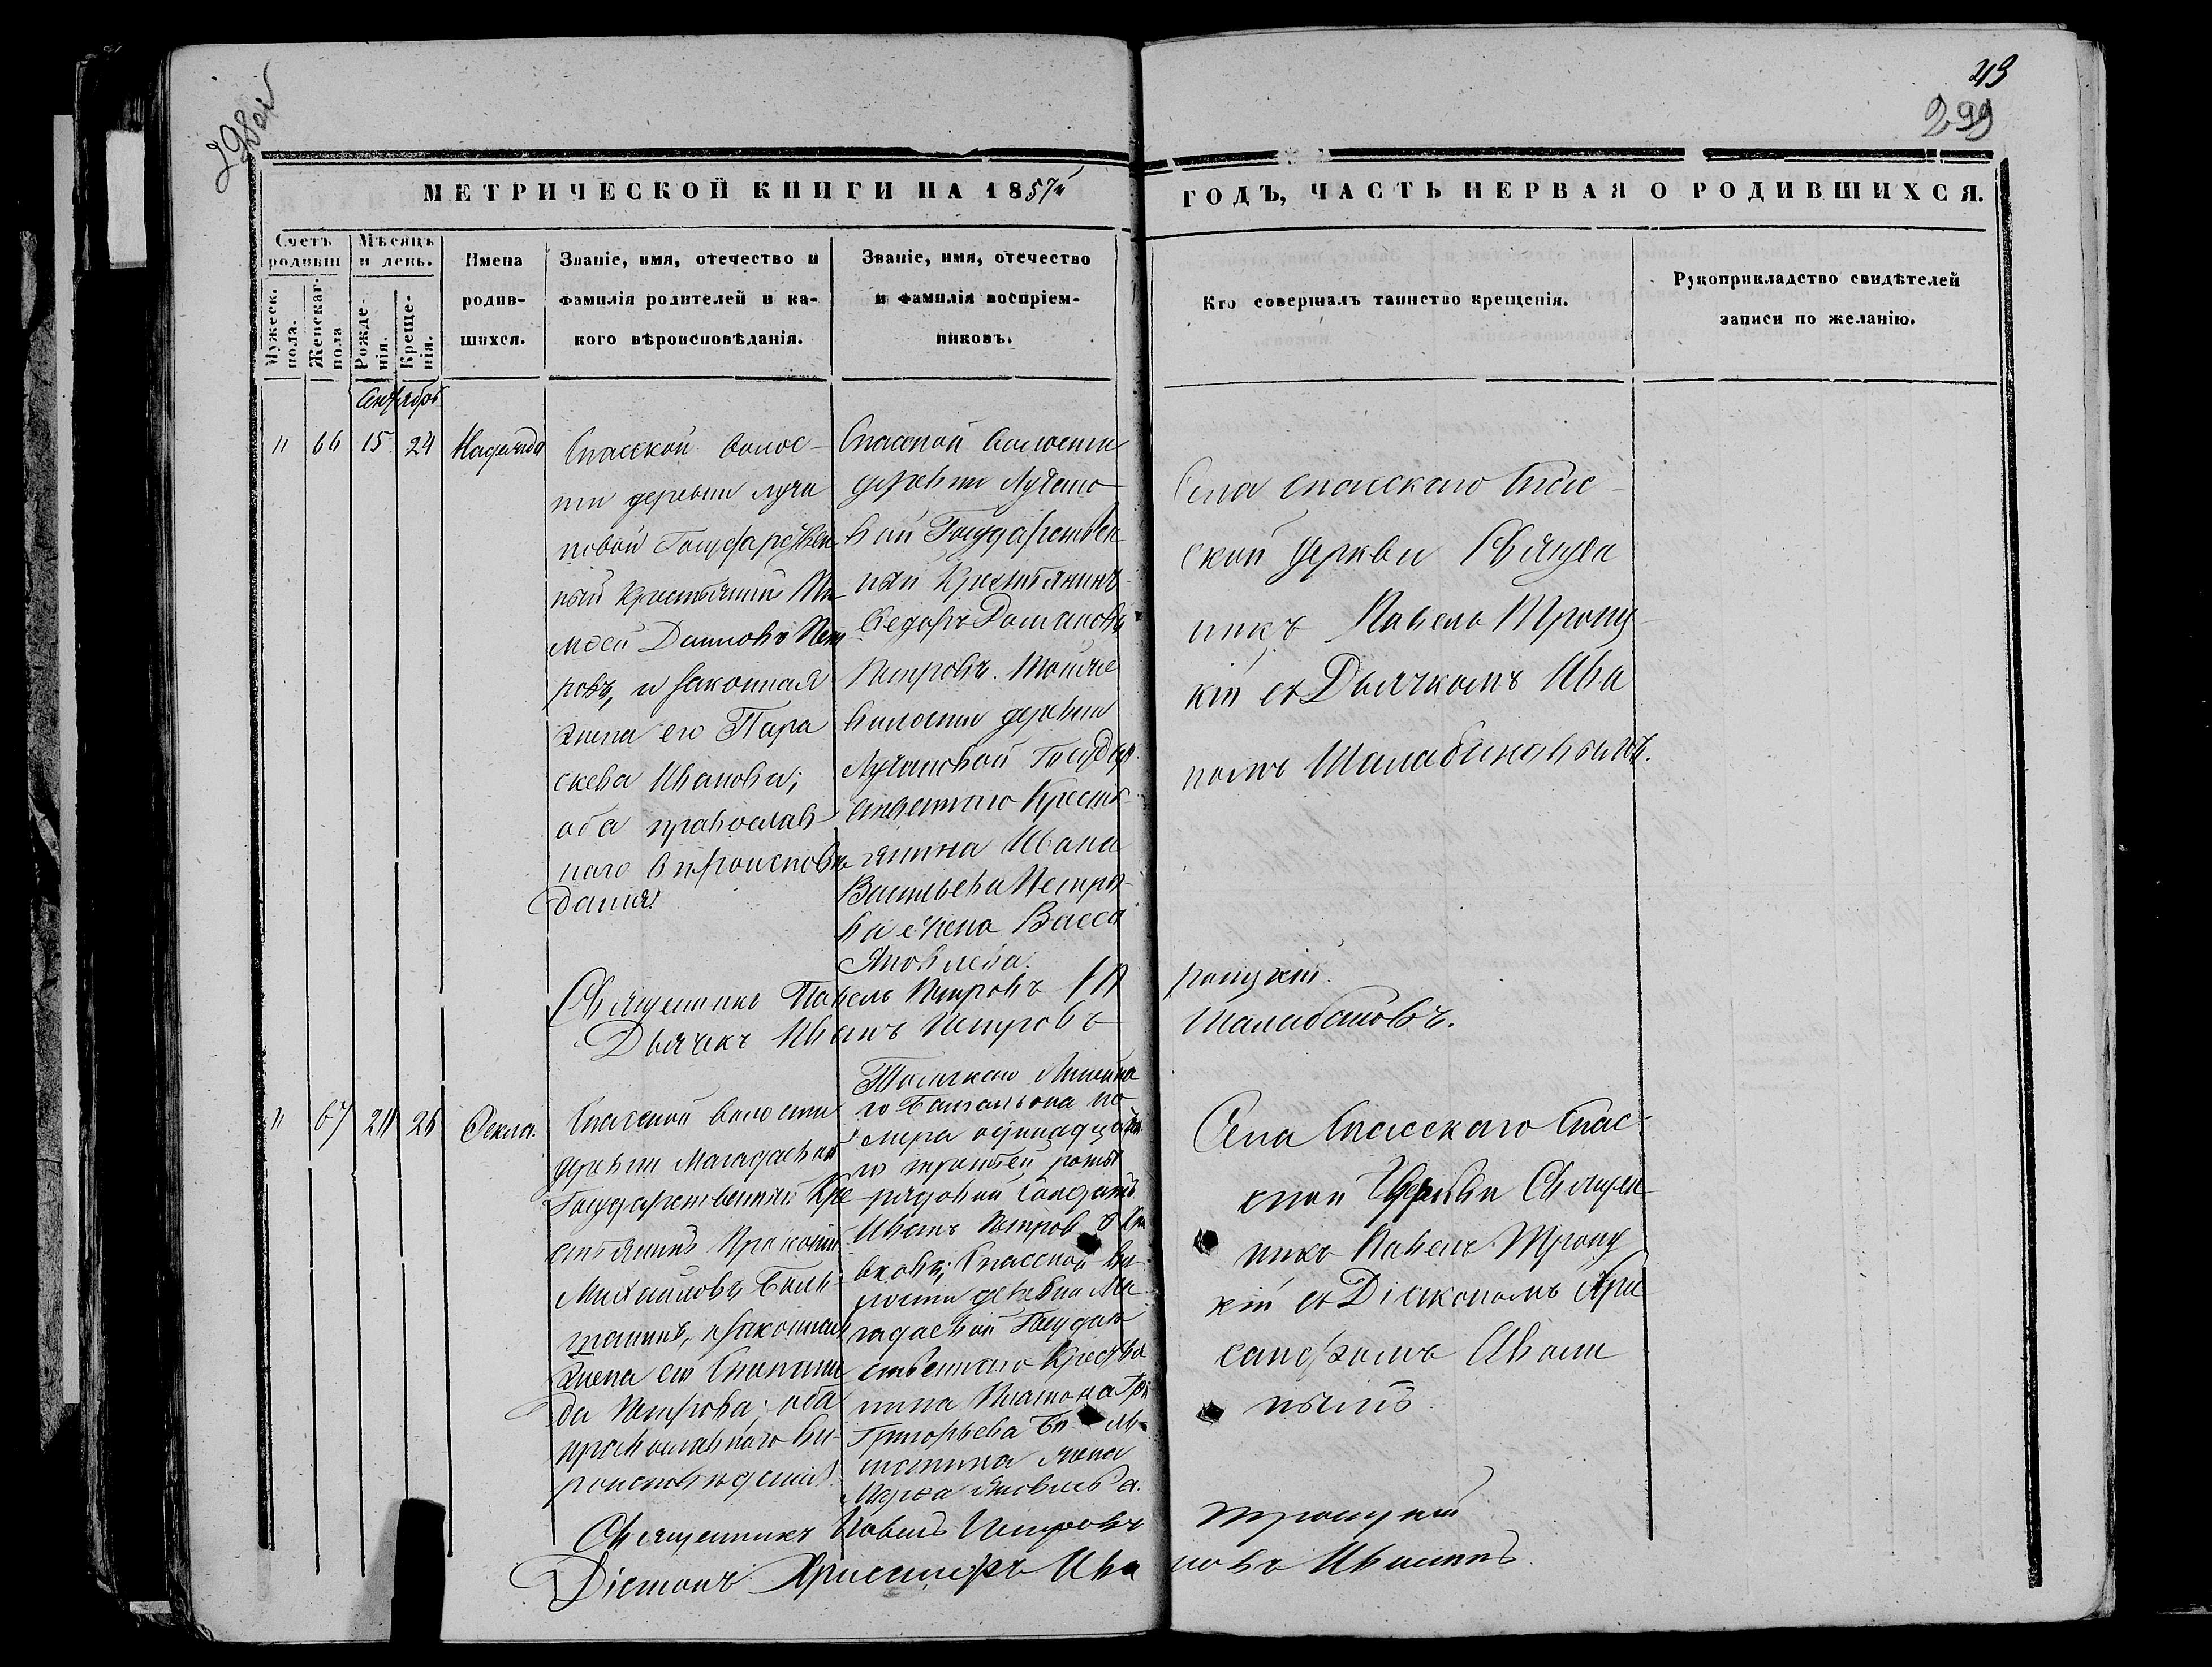 298об
43
299
МЕТРИЧЕСКОЙ КНИГИ НА 1857й
ГОДЪ, ЧАСТЬ ПЕРВАЯ О РОДИВШИХСЯ.
Счетъ родивш
Мужеск. пола.
Женскаг. пола
Мѣсяцъ и день.
Рожде-нія.
Креще-нія.
Имена
родив-
шихся.
Званіе, имя, отечество и
фамилія родителей и ка-
кого вѣроисповѣданія.
Званіе, имя, отечество
и фамилія воспріем-
никовъ.
Кто совершалъ таинство крещенія.
Рукоприкладство свидѣтелей
записи по желанію.
Сентябрь
" 66 15 24 Надежда
Спасской волос-
ти деревни Луча
новой Государствен
ный крестьянинъ
Даниловъ Пет
ровъ, и законная
жена его Пара
скева Иванова;
оба православ
наго вѣроисповѣ
данія.
Спасской волости
деревни Лучано
вой Государствен
ный Крестьянинъ
Федоръ
Петровъ. Той же
волости деревни
Лучановой Государ
ственнаго Кресть
янина Ивана
Васильева Петро
ва жена Васса
Яковлева.
Села Спасскаго Спас-
ской Церкви Священ
никъ Павелъ Троиц
кій съ Дьячкомъ Ива
номъ Шалабановымъ.
Священникъ Павелъ Петровъ Троицкій.
Дьячекъ Иванъ Петровъ Шалабановъ.
" 67 24 26 Фекла.
Спасской волости
деревни Магадаевой
Государственный Кре
стьянинъ Прокопій
Михаиловъ Боль
шанинъ, и законная
жена его Степани
да Петрова; оба
православнаго вѣ-
роисповѣданія.
Томскаго Линейна
го Баталіона но
мера одинадцата
го третьей роты
рядовой Солдатъ
Иванъ Петровъ
Спасской во
лости деревни Ма
гадаевой Государ
ственнаго Крестья
нина Платона Гри
Григорьева
жена
Марѳа Яковлева.
Села Спасскаго Спас-
ской Церкви Священ
никъ Павелъ Троиц
кій съ Діакономъ Хри
санфомъ Ивани
нымъ.
Священникъ Павелъ Петровъ Троицкій
Діаконъ Хрисанфъ Ивановъ Иванинъ.